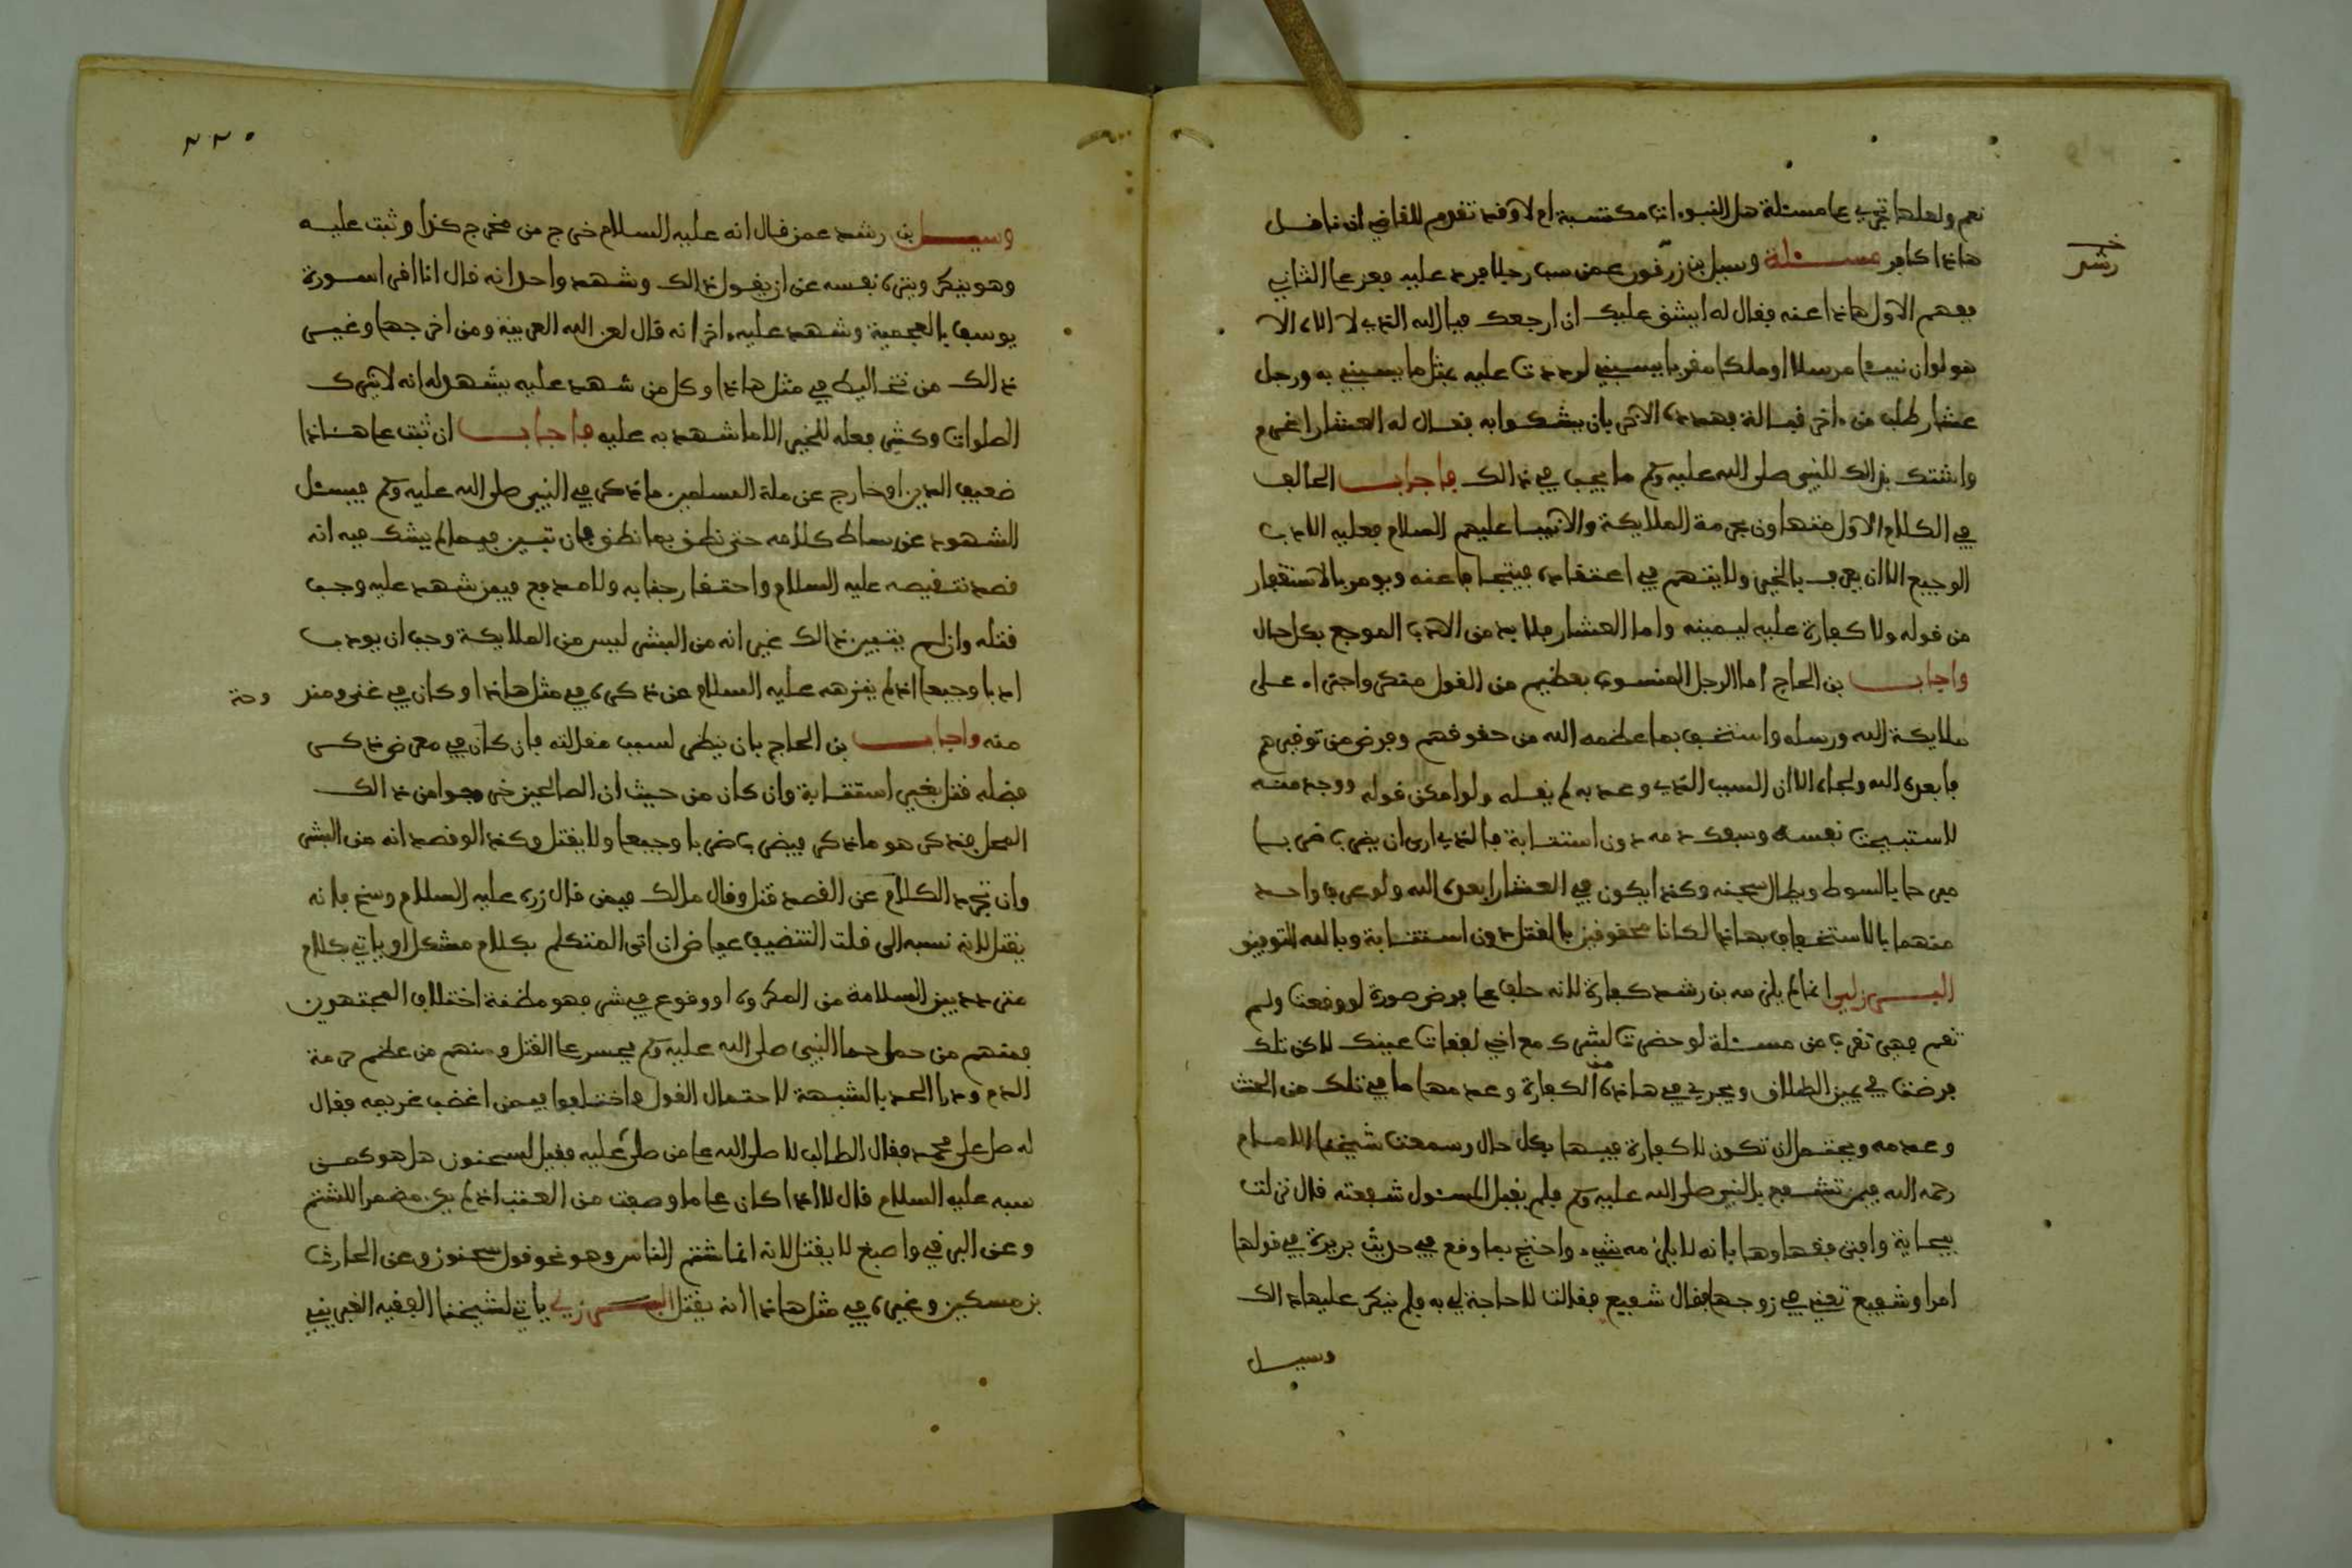 نعم ولعلها تجري على مسئلة هل النبوءات مكتسبة ام لا وقد تقدم للقاضي ان ناقل
هاذا كافر مسئلة وسيل بن زرقون عمن سب رجلا فرد عليه فعز على الثاني
فهم الاول هاذا عنه فقال له ايشق عليك ان ارجعك فبالله الذي لا الاه الا
هو لو ان نبيا مرسلا او ملكا مقربا يسبني لرددت عليه بمثل ما يسبني به ورجل
عشار طلب من ءاخر قبالة فهدده الاخر بان يشكوا به فقال له العشار اغرم
واشتك بذالك للنبي صلى الله عليه وسلم ما يجب في ذالك فاجاب الحالف
في الكلام الاول متهاون بحرمة الملايكة والانبيا عليهم السلام فعليه الادب
الوجيع الا ان يعرف بالخير ولا يتهم في اعتقاده فيتجافا عنه ويومر بالاستغفار
من قوله ولا كفارة عليه ليمينه واما العشار فلا بد من الادب الموجع بكل حال
واجاب بن الحاج اما الرجل المنسوب بعظيم من القول منكر واجتراء على
ملايكة الله ورسله واستخف بما عظمه الله من حقوقهم وفرض من توقيرهم
فابعده الله ولحاه الا ان السبب الذي وعد به لم يفعله ولو امكن قوله ووجد منه
لاستبيحت نفسه وسفك دمه دون استتابة فالذي ارى ان يضرب ضربا
مبرحا بالسوط ويطال سجنه وكذا يكون في العشار ابعده الله ولو عرف واحد
منهما بالاستخفاف بهاذا لكانا محقوقين بالقتل دون استتابة وبالله التوفيق
البرزلي انما لم يلزمه بن رشد كفارة لانه حلف على فرض صورة لو وقعت ولم
تقع فهي تقرب من مسئلة لو حضرت لشرك مع اخي لفقات عينك لاكن تلك
فرضت في يمين الطلاق ويجري في هاذه من الكفارة وعدمها ما في تلك من الحنث
وعدمه ويحتمل ان تكون لا كفارة فيها بكل حال وسمعت شيخنا الامام
رحمه الله فيمن تشفع بالنبي صلى الله عليه وسلم فلم يقبل المسئول شفعته قال نزلت
ببجاية وافتى فقهاوها بانه لا يلزمه شيء واحتج بما وقع في حديث بريرة في قولها
امرا وشفيع تعني في زوجها فقال شفيع فقالت لا حاجة لي به فلم ينكر عليها ذالك
وسيل
رشد
٢٢٠
وسيل بن رشد عمن قال انه عليه السلام خرج من مخرج كذا وثبت عليه
وهو ينكر وينزه نفسه عن ان يقول ذالك وشهد واحد انه قال انا اقرا سورة
يوسف بالعجمية وشهد عليه ءاخر انه قال لعن الله العربية ومن اخرجها وغير
ذالك من تخاليط في مثل هاذا وكل من شهد عليه يشهد له انه لا يترك
الصلوات وكثير فعله للخير الا ما شهد به عليه فاجاب ان ثبت على هاذا
ضعيف الدين او خارج عن ملة المسلمين ما ذكر في النبي صلى الله عليه وسلم فيسئل
الشهود عن بساط كلامه حتى نطق بما نطق فان تبين فيما لم يشك فيه انه
قصد تنقيصه عليه السلام واحتقار جنابه ولا مدفع فيمن شهد عليه وجب
قتله وان لم يتبين ذالك غير انه من البشر ليس من الملايكة وجب ان يودب
ادبا وجيعا اذ لم ينزهه عليه السلام عن ذكره في مثل هاذا وكان في غنى ومندوحة
منه واجاب بن الحاج بان ينظر لسبب مقالته فان كان في معرض ذكر
فضله قتل بغير استتابة وان كان من حيث ان الصالحين خرجوا من ذالك
المحل فذكر هو ما ذكر فيضرب ضربا وجيعا ولا يقتل وكذا لو قصد انه من البشر
وان تجرد الكلام عن القصد قتل وقال مالك فيمن قال زره عليه السلام وسخ فانه
يقتل لانه نسبه الى قلت التنضيف عياض ان اتى المتكلم بكلام مشكل او ياتي بكلام
متردد بين السلامة من المكروه او وقوع في شر فهو مظنة اختلاف المجتهدون
فمنهم من حمل حما النبي صلى الله عليه وسلم فجسر على القتل ومنهم من عظم حرمة
الدم ودرا الحد بالشبهة لاحتمال القول واختلفوا فيمن اغضب غريمه فقال
له صل على محمد فقال الطالب لا صلى الله على من صلى عليه فقيل لسحنون هل هو كمن
سبه عليه السلام قال لا اذا كان على ما وصفت من الغضب اذ لم يكن مضمرا للشتم
وعن البرقي واصبغ لا يقتل لانه انما شتم الناس وهو نحو قول سحنون وعن الحارث
بن مسكين وغيره في مثل هاذا انه يقتل البرزلي ياتي لشيخنا الفقيه الغبريني